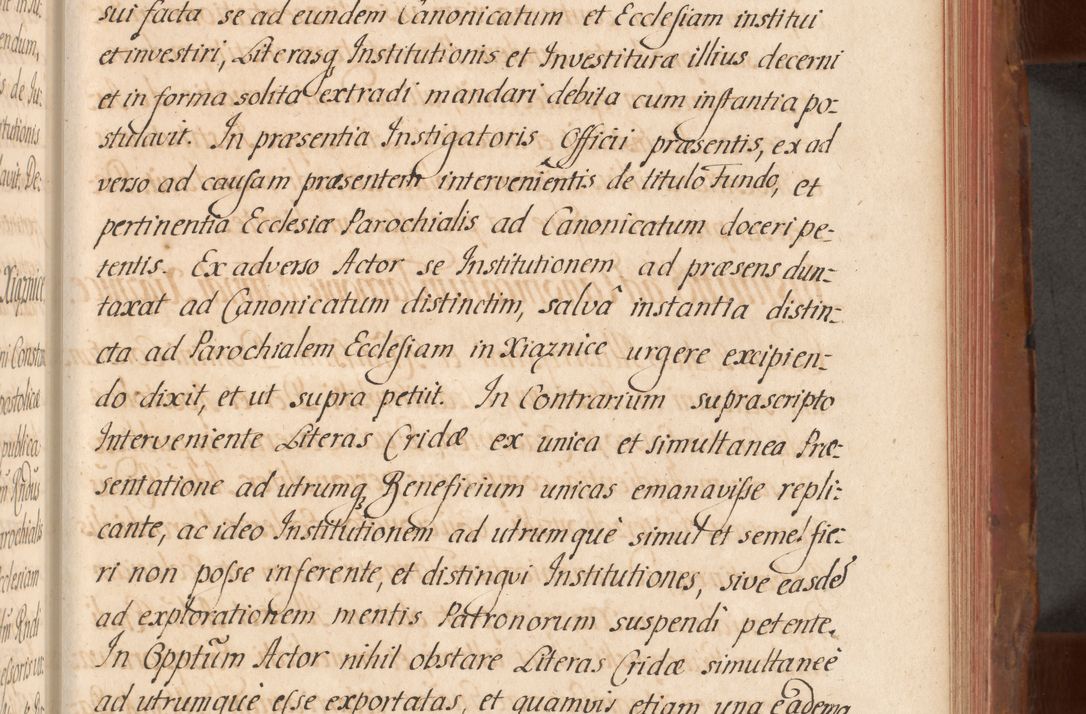 sui facta se ad eundem Canonicatum et Ecclesiam institui
et investiri, Literasq Institutionis et Investituræ illius decerni
et in forma solita extradi mandari debita cum instantia po-
stulavit. In præsentia Instigatoris Officii præsentis, ex ad
verso ad causam præsentem intervenientis de titulo Fundo, et
pertinentia Ecclesiæ Parochialis ad Canonicatum doceri pe-
tentis. Ex adverso Actor se Institutionem ad præsens dun-
taxat ad Canonicatum distinctim, salvâ instantia distin-
cta ad Parochialem Ecclesiam in Xiąznice urgere excipien-
do dixit, et ut supra petiit. In Contrarium suprascripto
Interveniente Literas Cridæ ex unica et simultanea Præ-
sentatione ad utrumq Beneficium unicas emanavisse repli-
cante, ac ideo Institutionem ad utrumquè simul et semel fie-
ri non posse inferente, et distingvi Institutiones, sive easdẽ
ad explorationem mentis Patronorum suspendi petente.
In Opptũm Actor nihil obstare Literas Cridæ simultaneè
ad utrumquè esse exportatas, et quamvis etiam una eâdemq